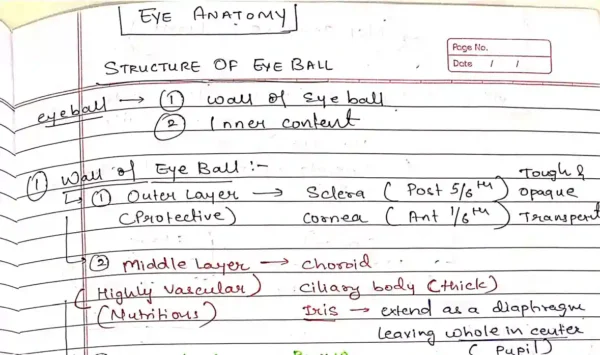 EYE ANATOMY
Page No.
Date / /
STRUCTURE OF EYE BALL
eyeball → ① wall of Eye ball
② Inner content
① Wall of Eye Ball :-
Tough &
↳ ① Outer Layer → Sclera ( Post 5/6th ) opaque
(Protective) cornea ( Ant 1/6th ) Transpent
② Middle Layer → choroid
( Highly vascular) ciliary body (thick)
(Nutritious) Iris → extend as a diaphragm
leaving whole in center
( Pupil )